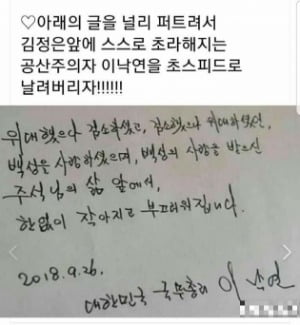 ♡아래의 글을 널리 퍼트려서
김정은앞에 스스로 초라해지는
공산주의자 이낙연을 초스피드로
날려버리자!!!!!!
위대했으나 검소하셨고, 검소했으나 위대하셨던,
백성을 사랑하셨으며, 백성의 사랑을 받으신
주석님의 삶 앞에서,
한없이 작아지고 부끄러워집니다.
2018. 9. 26.
대한민국 국무총리 이낙연